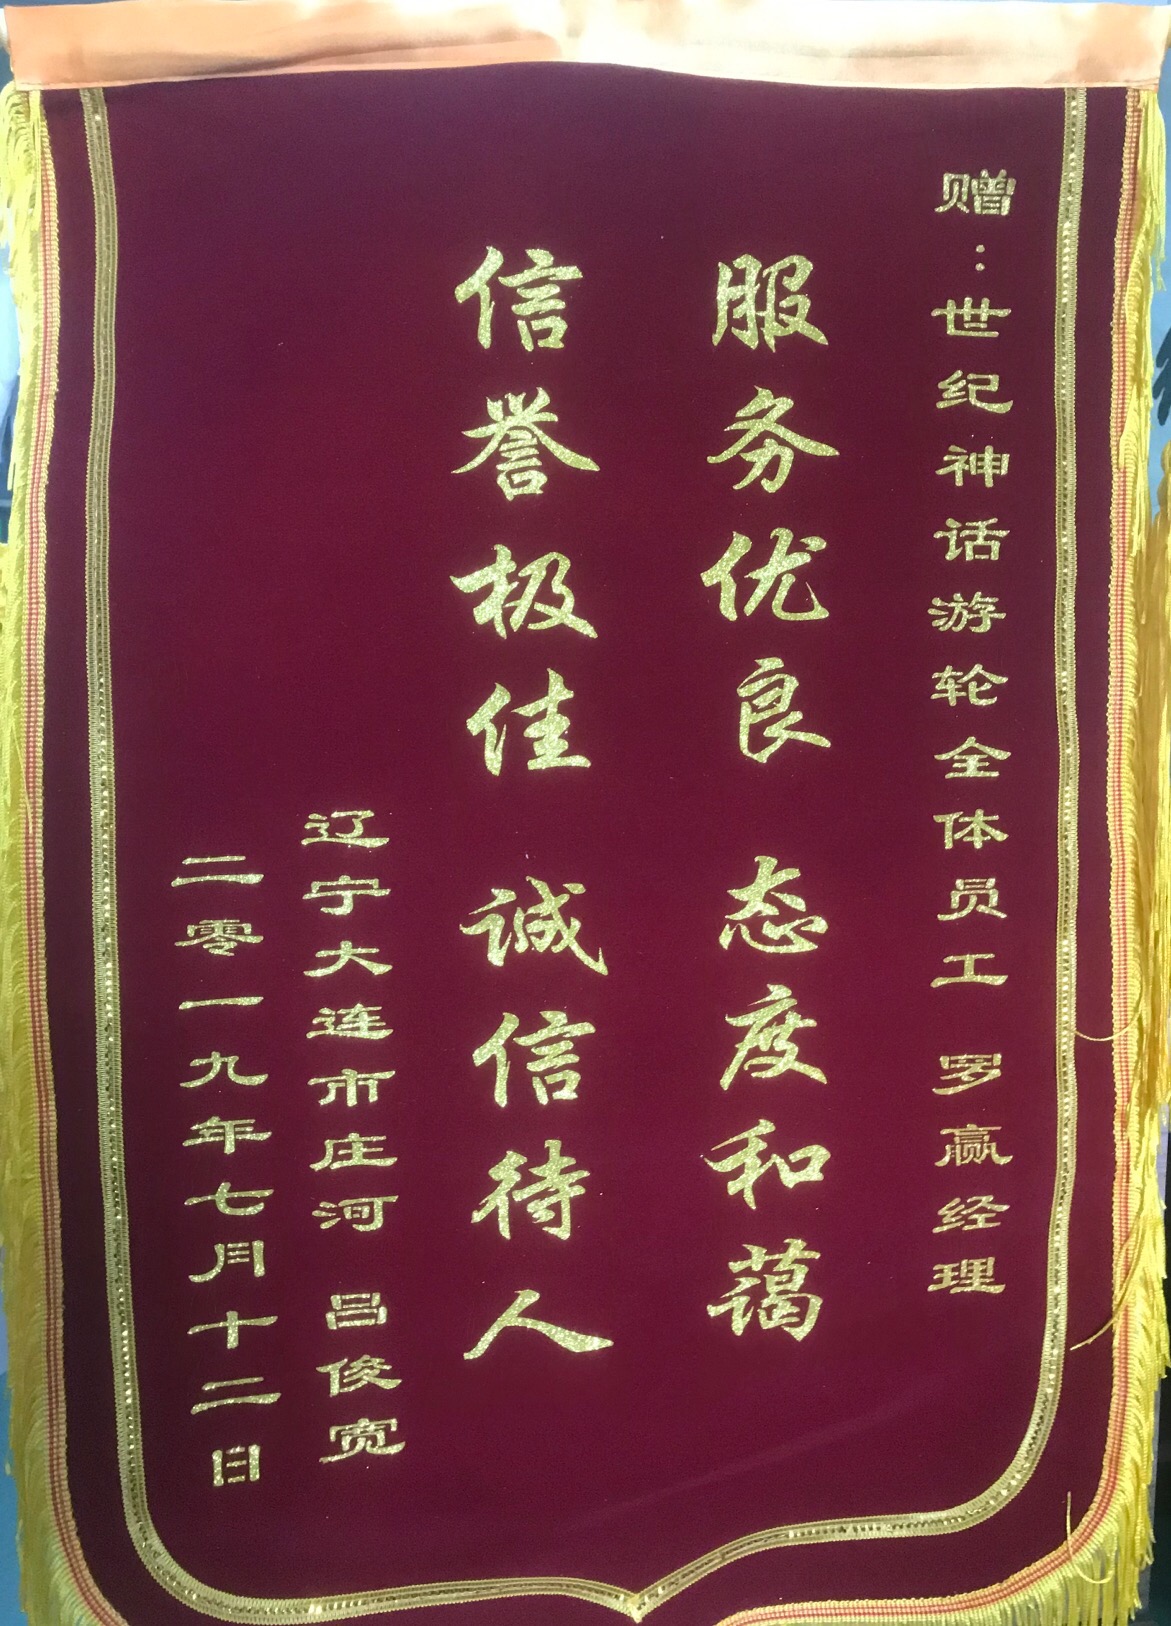 赠：世纪神话游轮全体员工 罗赢经理
服务优良 态度和蔼
信誉极佳 诚信待人
辽宁大连市庄河 吕俊宽
二零一九年七月十二日